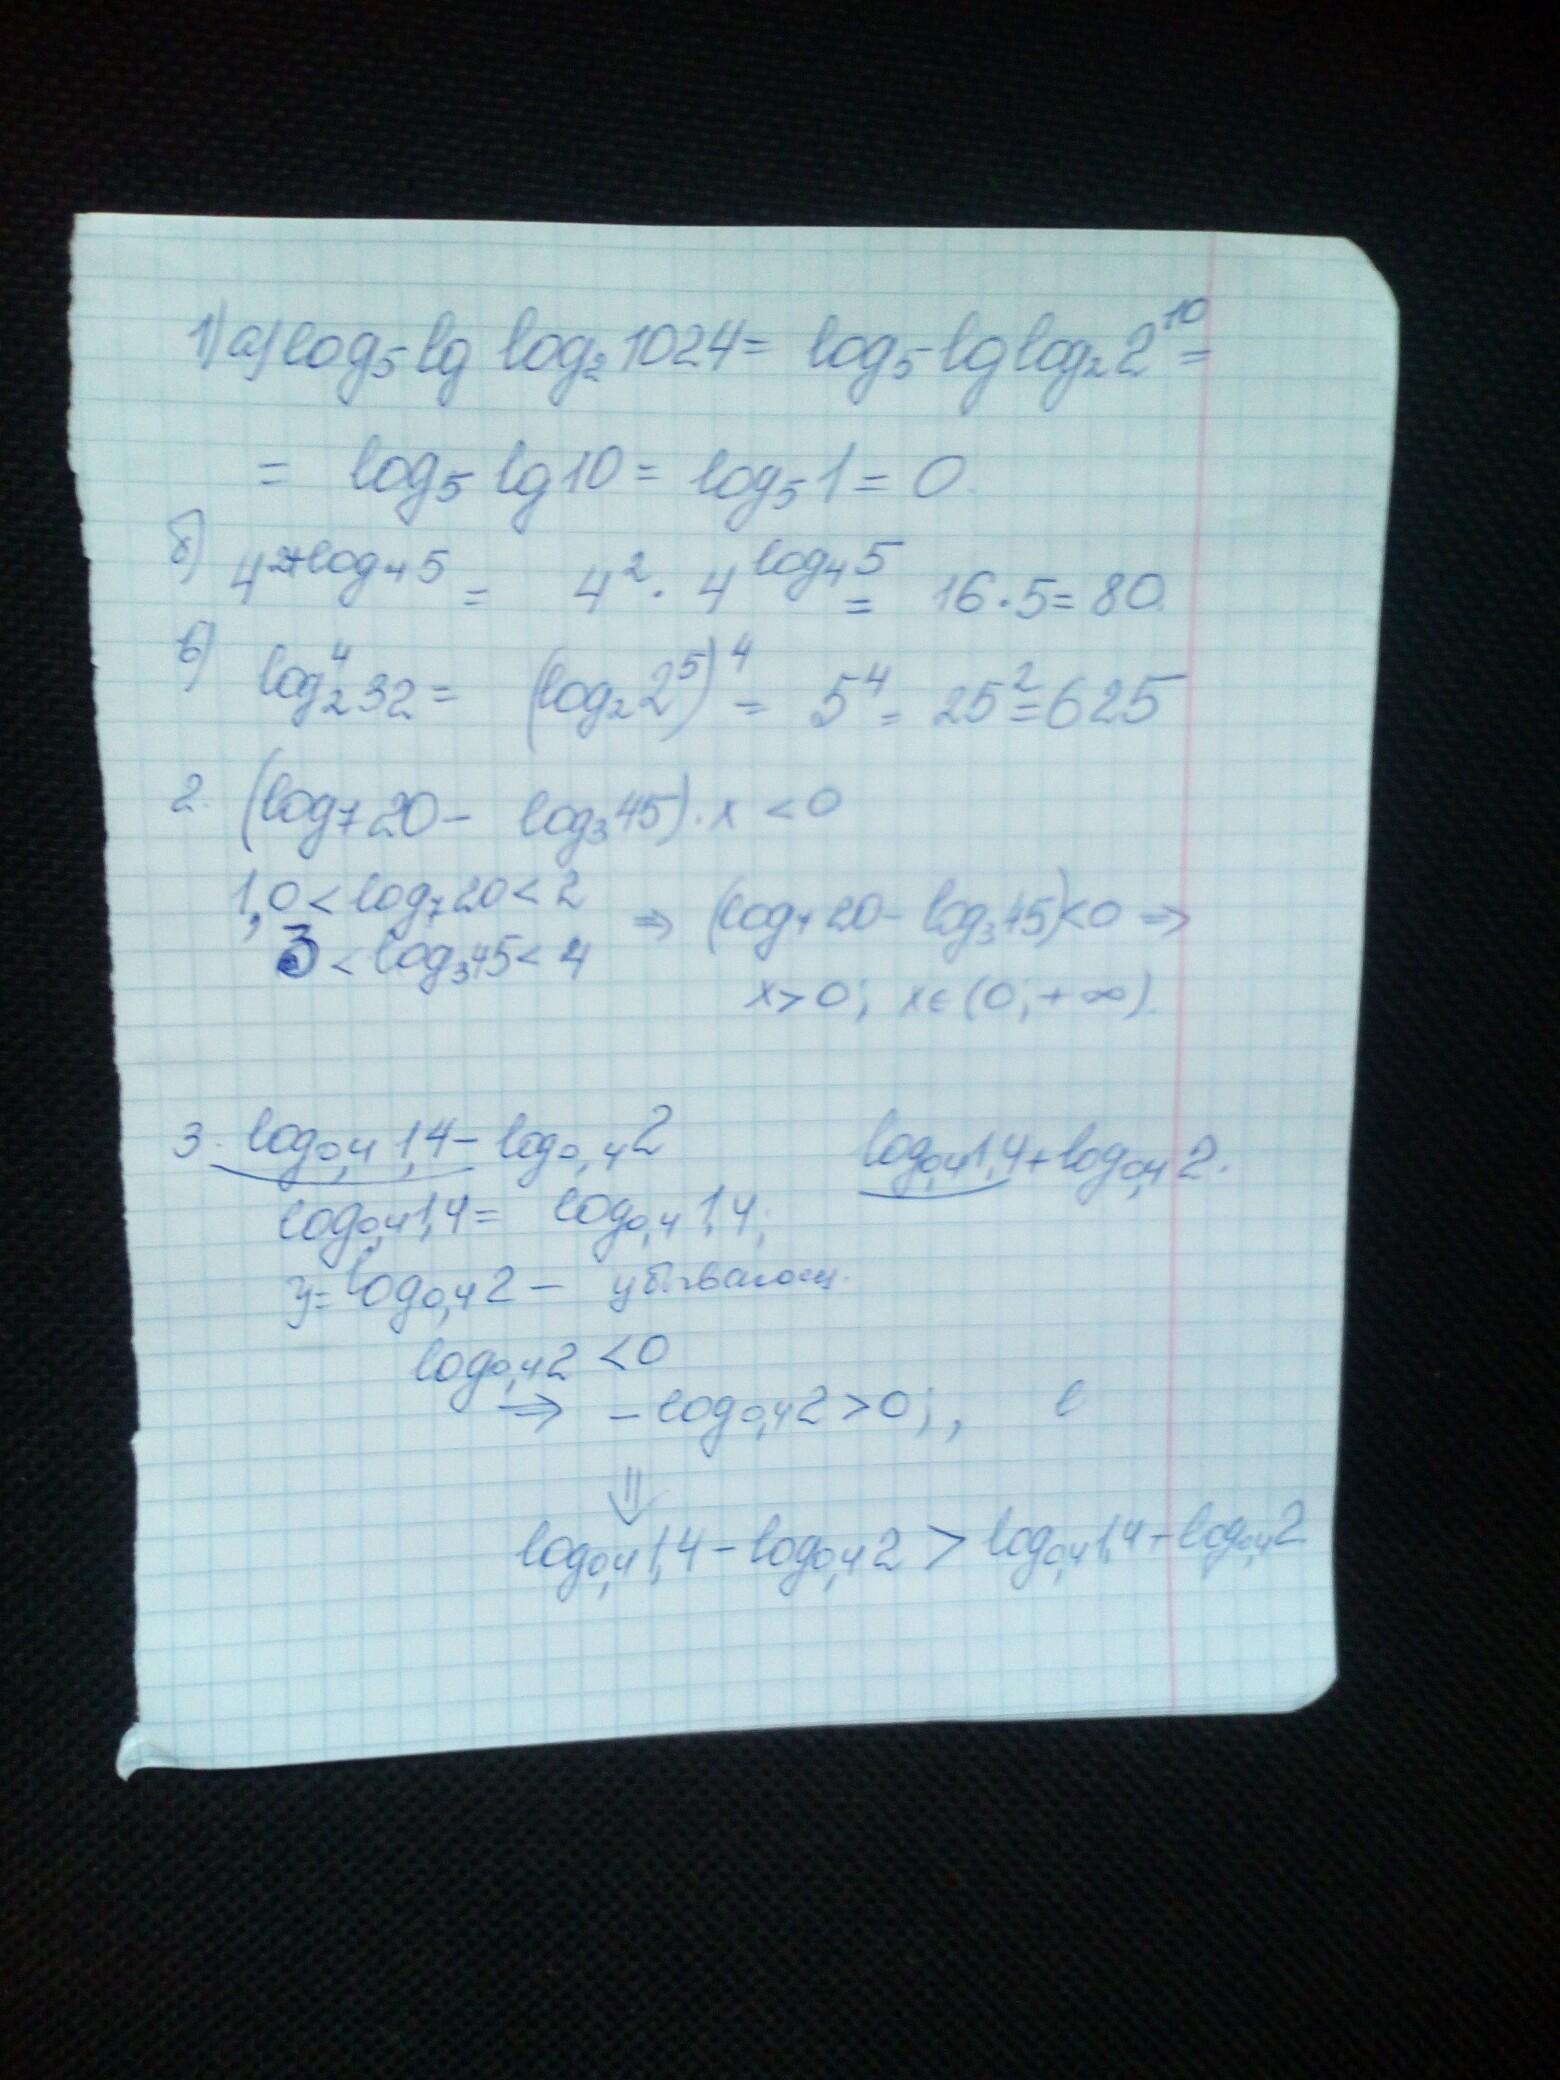 1) а) log₅ lg log₂ 1024 = log₅ lg log₂ 2¹⁰ =
= log₅ lg 10 = log₅ 1 = 0.
б) 4^(2+log₄5) = 4² · 4^(log₄5) = 16 · 5 = 80.
в) log₂⁴ 32 = (log₂ 2⁵)⁴ = 5⁴ = 25² = 625
2. (log₇ 20 - log₃ 45) · x < 0
1,0 < log₇ 20 < 2 ⇒ (log₇ 20 - log₃ 45) < 0 ⇒
3 < log₃ 45 < 4
x > 0; x ∈ (0; +∞).
3. log₀,₄ 1,4 - log₀,₄ 2 log₀,₄ 1,4 + log₀,₄ 2.
log₀,₄ 1,4 = log₀,₄ 1,4;
y = log₀,₄ 2 - убывающ.
log₀,₄ 2 < 0
⇒ - log₀,₄ 2 > 0; , l
⇓
log₀,₄ 1,4 - log₀,₄ 2 > log₀,₄ 1,4 + log₀,₄ 2